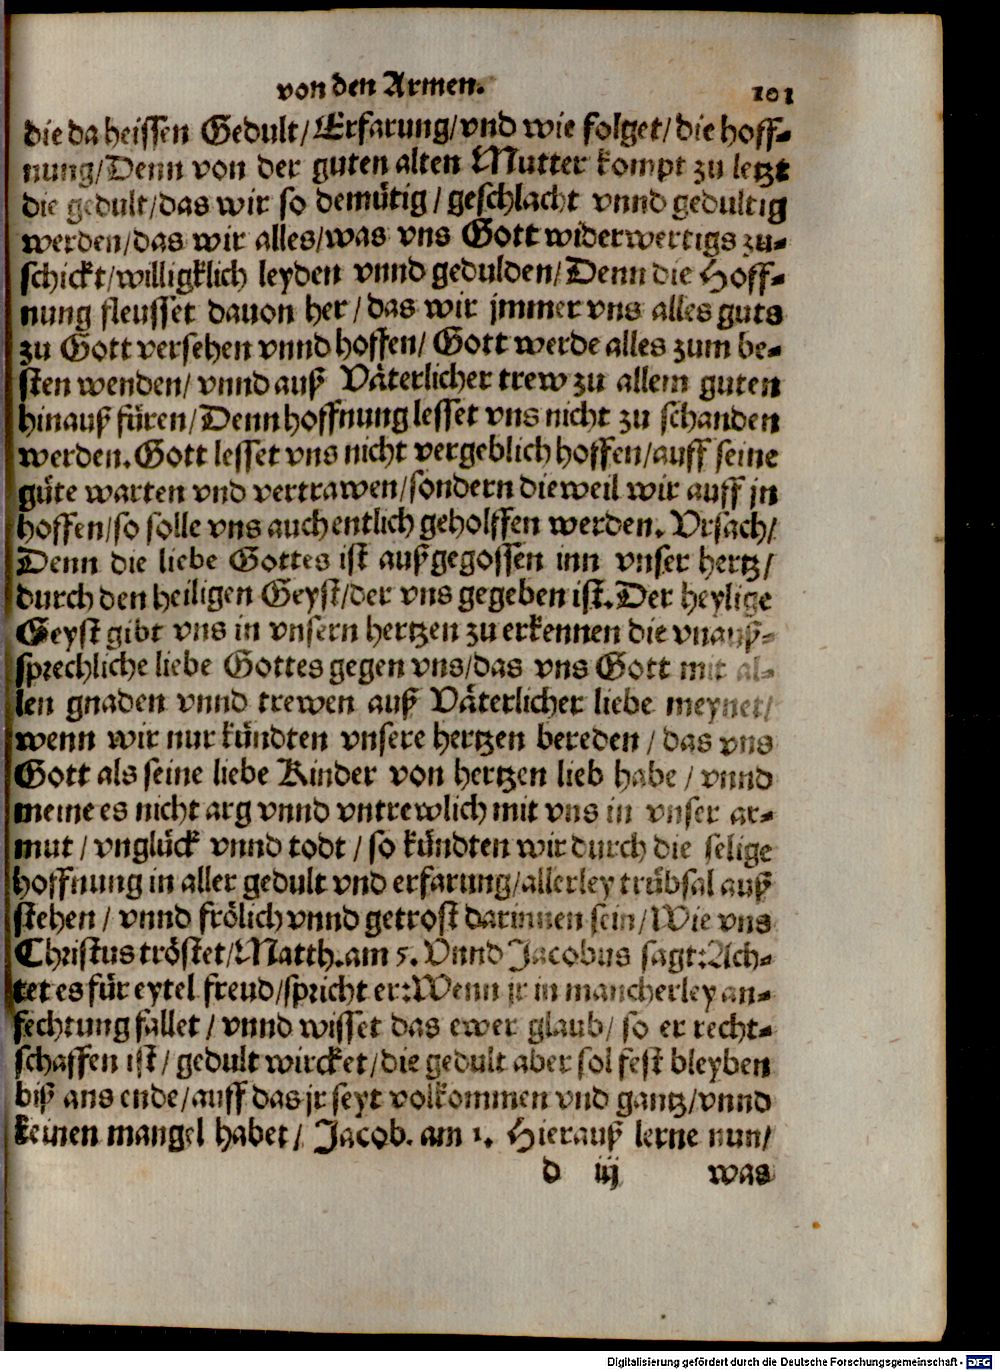 von den Armen. 101
die da heissen Gedult/Erfarung/vnd wie folget/die hoff-
nung/Denn von der guten alten Mutter kompt zu letzt
die gedult/das wir so demütig/geschlacht vnnd gedultig
werden/das wir alles/was vns Gott widerwertigs zu-
schickt/willigklich leyden vnnd gedulden/Denn die Hoff-
nung fleusset dauon her/das wir jmmer vns alles guts
zu Gott versehen vnnd hoffen/Gott werde alles zum be-
sten wenden/vnnd auß Väterlicher trew zu allem guten
hinauß füren/Denn hoffnung lesset vns nicht zu schanden
werden. Gott lesset vns nicht vergeblich hoffen/auff seine
güte warten vnd vertrawen/sondern dieweil wir auff jn
hoffen/so solle vns auch entlich geholffen werden. Vrsach/
Denn die liebe Gottes ist außgegossen inn vnser hertz/
durch den heiligen Geyst/der vns gegeben ist. Der heylige
Geyst gibt vns in vnsern hertzen zu erkennen die vnauß-
sprechliche liebe Gottes gegen vns/das vns Gott mit al-
len gnaden vnnd trewen auß Väterlicher liebe meynet/
wenn wir nur kündten vnsere hertzen bereden/das vns
Gott als seine liebe Kinder von hertzen lieb habe/vnnd
meine es nicht arg vnnd vntrewlich mit vns in vnser ar-
mut/vnglück vnnd todt/so kündten wir durch die selige
hoffnung in aller gedult vnd erfarung/allerley trübsal auß
stehen/vnnd frölich vnnd getrost darinnen sein/Wie vns
Christus tröstet/Matth. am 5. Vnnd Jacobus sagt: Ach-
tet es für eytel freud/spricht er: Wenn jr in mancherley an-
fechtung fallet/vnnd wisset das ewer glaub/so er recht-
schaffen ist/gedult wircket/die gedult aber sol fest bleyben
biß ans ende/auff das jr seyt volkommen vnd gantz/vnnd
keinen mangel habet/Jacob. am 1. Hierauß lerne nun/
d iij was
Digitalisierung gefördert durch die Deutsche Forschungsgemeinschaft - DFG